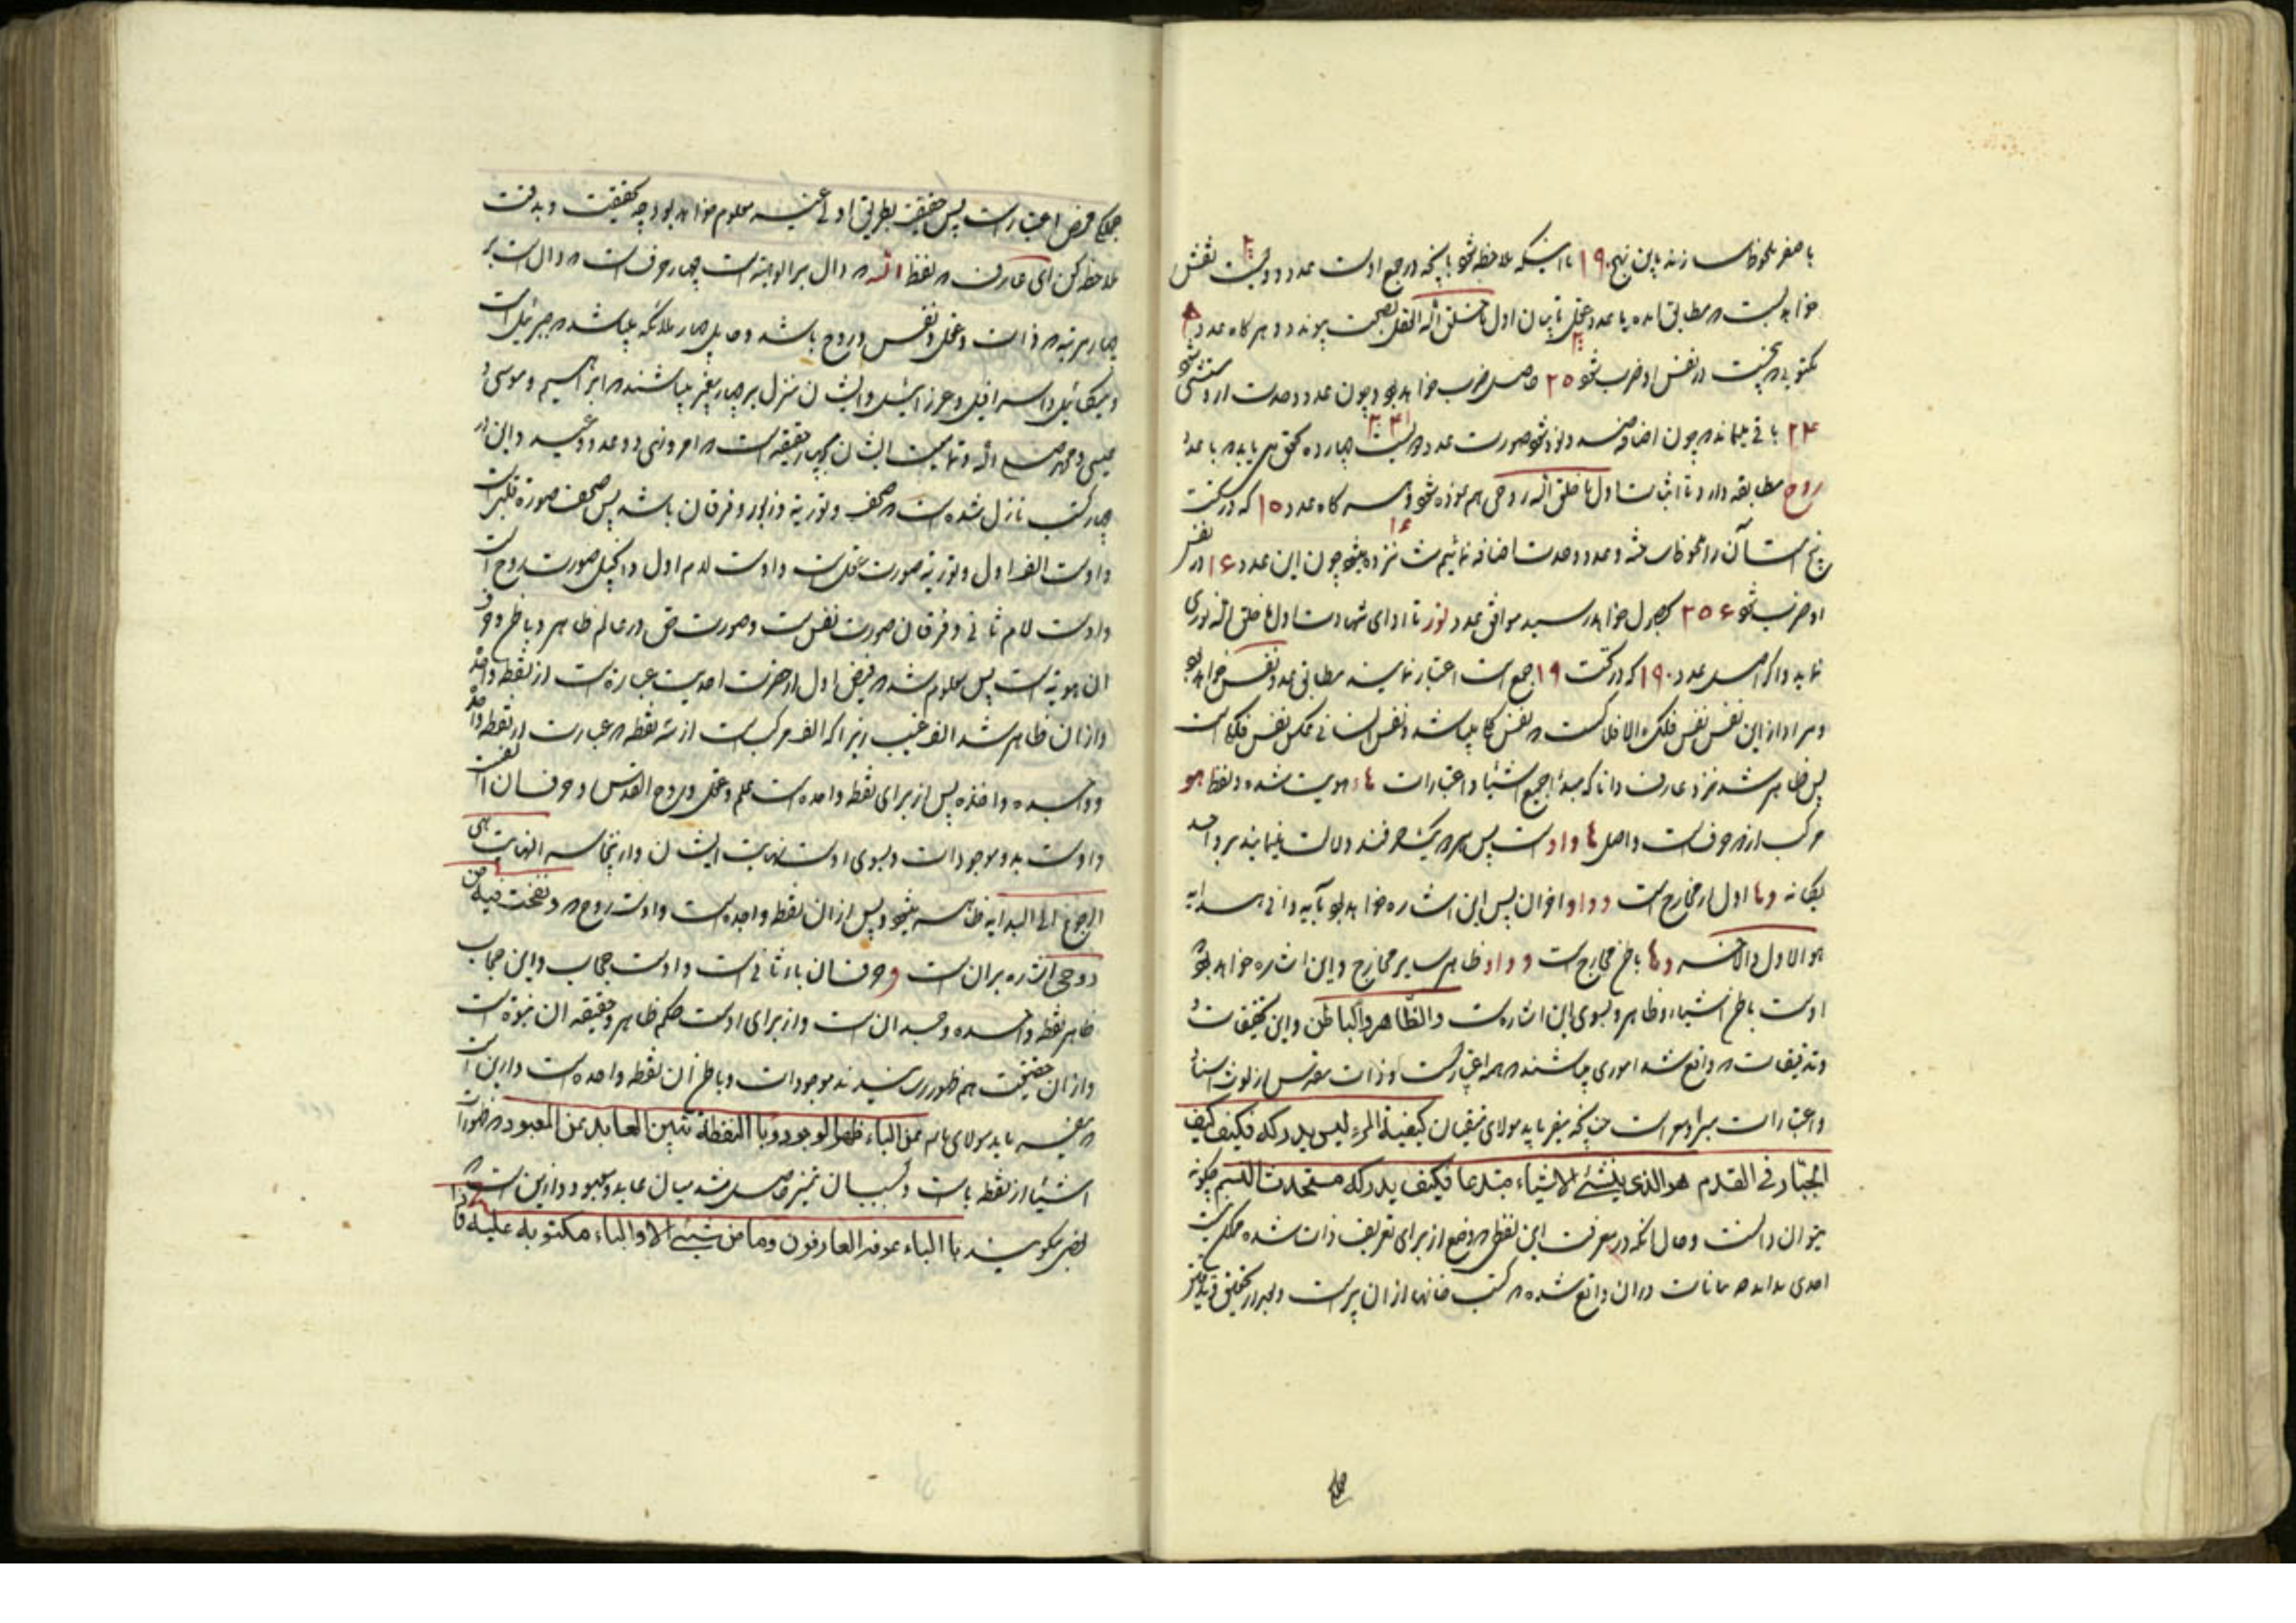 با صفر ملحوظ سازند باین نهج ۱۹۰ تا اینکه ملاحظه شود بآنچه در جمع اوست عدد دویست نقش
خواهد بست که مطابق آمده با عدد عقل تا بیان اول ما خلق الله العقل بصحت پیوندد و هر گاه عدد ۵
مکتوبی که پنجست در نفس او ضرب شود ۲۵ حاصل ضرب خواهد بود و چون عدد وحدت از او مستثنی شود
۲۴ باقی میماند که چون اضافه نود شود صورت عدد دویست چهارده تحقق می یابد که با عدد
روح مطابقه دارد تا اثبات اول ما خلق الله روحی هم نموده شود و هر گاه عدد ۱۵ که در کتب
پنج است آن را ملحوظ داشته و عدد وحدت اضافه نمائیم شانزده میشود چون این عدد ۱۶ در نفس
او ضرب شود ۲۵۶ بحصول خواهد رسید موافق عدد نور تا ادای شهادت اول ما خلق الله نوری
نماید و اگر اصل عدد ۱۹۰ که در کتب ۱۹ جمع است اعتبار نمایند مطابق عدد نفس خواهد بود
و مراد از این نفس نفس فلک الافلاکست که نفس کل میباشد و نفس انسانی عکس نفس فلک است
پس ظاهر شد نزد عارف دانا که مبدأ جمیع اشیاء و اعتبارات هاء هویت شده و لفظ هو
مرکب از دو حرف است و اصل ها واوست پس هر دو یک حرفند و دلالت مینمایند بر واحد
یگانه و ها اول از مخارج است و واو آخر آن پس این اشاره خواهد بود بآیه وافی هدایه
هو الاول والاخر و ها باطن مخارج است و واو ظاهر سایر مخارج و این اشاره خواهد بود
اوست باطن اشیاء و ظاهر و بسوی این اشاره است والظاهر والباطن و این تحقیقات
و تدقیقات که واقع شد اموری میباشند که همه اعتباریست و ذات مقدس از لوث اسناد
و اعتبارات مبرا و معراست چنانکه میفرماید مولای متقیان کیفیة المرء لیس یدرکه فکیف کیف
الجبار فی القدم هو الذی ینشئ الاشیاء مبتدعا فکیف یدرکه مستحدث النسم چگونه
میتوان دانست و حال آنکه در معرفت این لفظی که وضع از برای تعریف ذات شده ممکن نیست
احدی بداند در آن واقع شده که کتب خانها از آن پر است
جمله
جمله محض اعتبار است پس حقیقة بطریق اولی غیر معلوم خواهد بود چه بحقیقت و بدقت
ملاحظه کن ای عارف که لفظ الله که دال بر الوهیة است چهار حرف است که دال است بر
چهار مرتبه که ذات و عقل و نفس و روح باشد و حامل چهار ملائکه میباشد که جبرئیل است
و میکائیل و اسرافیل و عزرائیل و ایشان منزل بر چهار پیغمبر میباشند که ابراهیم و موسی و
عیسی و محمد صلی الله و تمامیت ایشان بچهار حقیقه است که امر و نهی و وعد و وعید و این در
چهار کتب نازل شده است که صحف و توریة و زبور و فرقان باشد پس صحف صورة قلب است
و اوست الف اول و توریة صورت عقل است و اوست لام اول و انجیل صورت روح است
و اوست لام ثانی و فرقان صورت نفس است و صورت حق در عالم ظاهر و باطن و حرف
آن هویة است پس معلوم شد که فیض اول از حضرت احدیت عبارة است از نقطه واحده
و از آن ظاهر شد الف غیب زیرا که الف مرکب است از سه نقطه که عبارت از نقطه واحده
پس از برای نقطه واحده است علم و عقل و روح القدس و حرف آن الف است
و اوست بدو موجودات و بسوی اوست نهایت ایشان و از اینجا سر النهایت هی
الرجوع الی البدایه ظاهر میشود و پس از آن نقطه واحده است و اوست روح که و نفخت فیه من
روحی اشاره بر آن است و حرف آن باء ثانی است و اوست حجاب و این حجاب
ظاهر نقطه واحده وحدان است و از برای اوست حکم ظاهر و حقیقه آن نبوة است
و از آن حقیقت هم ظهور رسیدند موجودات و باطن آن نقطه واحده است و از این است
که میفرماید مولای ما عن الباء ظهر الوجود و با النقطة تبین العابد عن المعبود که ظهور
اشیاء از نقطه باست و بسبب آن تمیز حاصل شد میان عابد و معبود و از این است که
بعضی میگویند با الباء عرف العارفون وما من شیئ الا والباء مکتوبة علیه فا